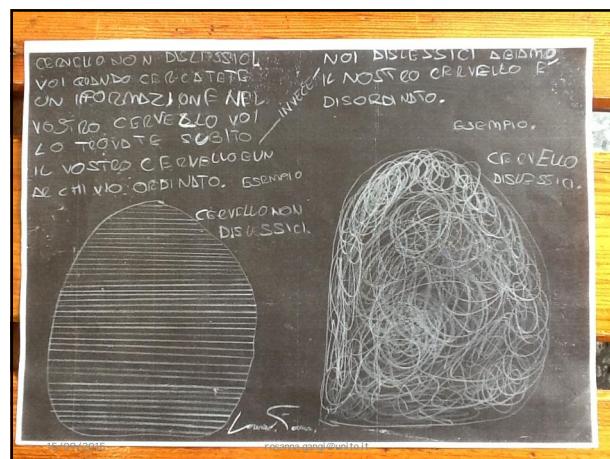 CERVELLO NON DISLESSICI
VOI QUANDO CERCATETE
UN IFORMAZIONE NEL
VOSTRO CERVELLO VOI
LO TROVATE SUBITO
IL VOSTRO CERVELLO E UN
ARCHIVIO ORDINATO. ESEMPIO
CERVELLO NON
DISLESSICI.
INVECE
NOI DISLESSICI ABIAMO
IL NOSTRO CERVELLO E'
DISORDINATO.
ESEMPIO.
CERVELLO
DISLESSICI.
15/09/2015
rosanna.gangi@unito.it